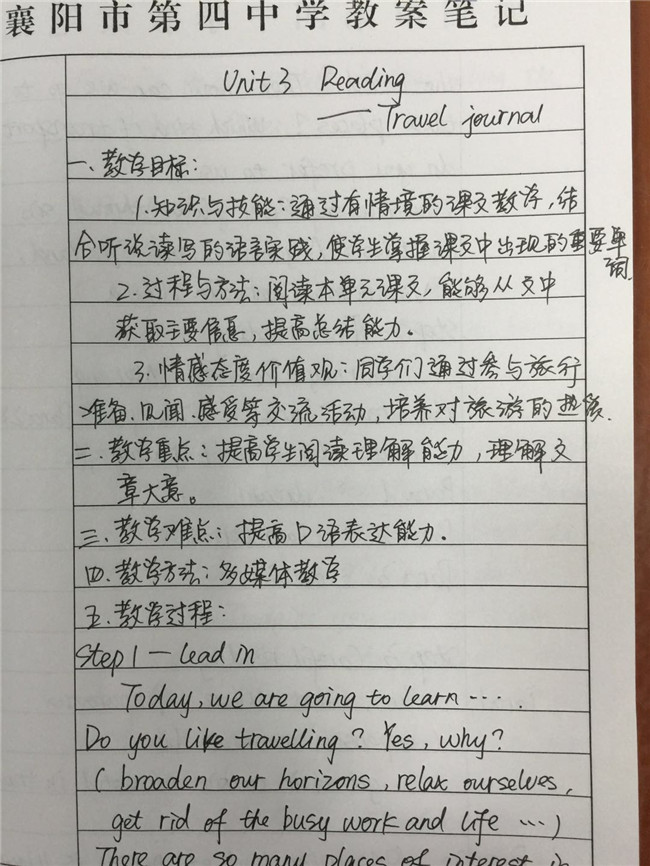 襄阳市第四中学教案笔记
Unit 3 Reading
—— Travel journal
一、教学目标：
1.知识与技能：通过有情境的课文教学，结
合听说读写的语言实践，使学生掌握课文中出现的重要单
词.
2.过程与方法：阅读本单元课文，能够从文中
获取主要信息，提高总结能力。
3.情感态度价值观：同学们通过参与旅行
准备、见闻、感受等交流活动，培养对旅游的热
二、教学重点：提高学生阅读理解能力，理解文
章大意。
三、教学难点：提高口语表达能力.
四、教学方法：多媒体教学
五、教学过程：
Step 1 — Lead in
Today, we are going to learn ….
Do you like travelling? Yes, why?
( broaden our horizons, relax ourselves,
get rid of the busy work and life …)
There are so many places of interest in